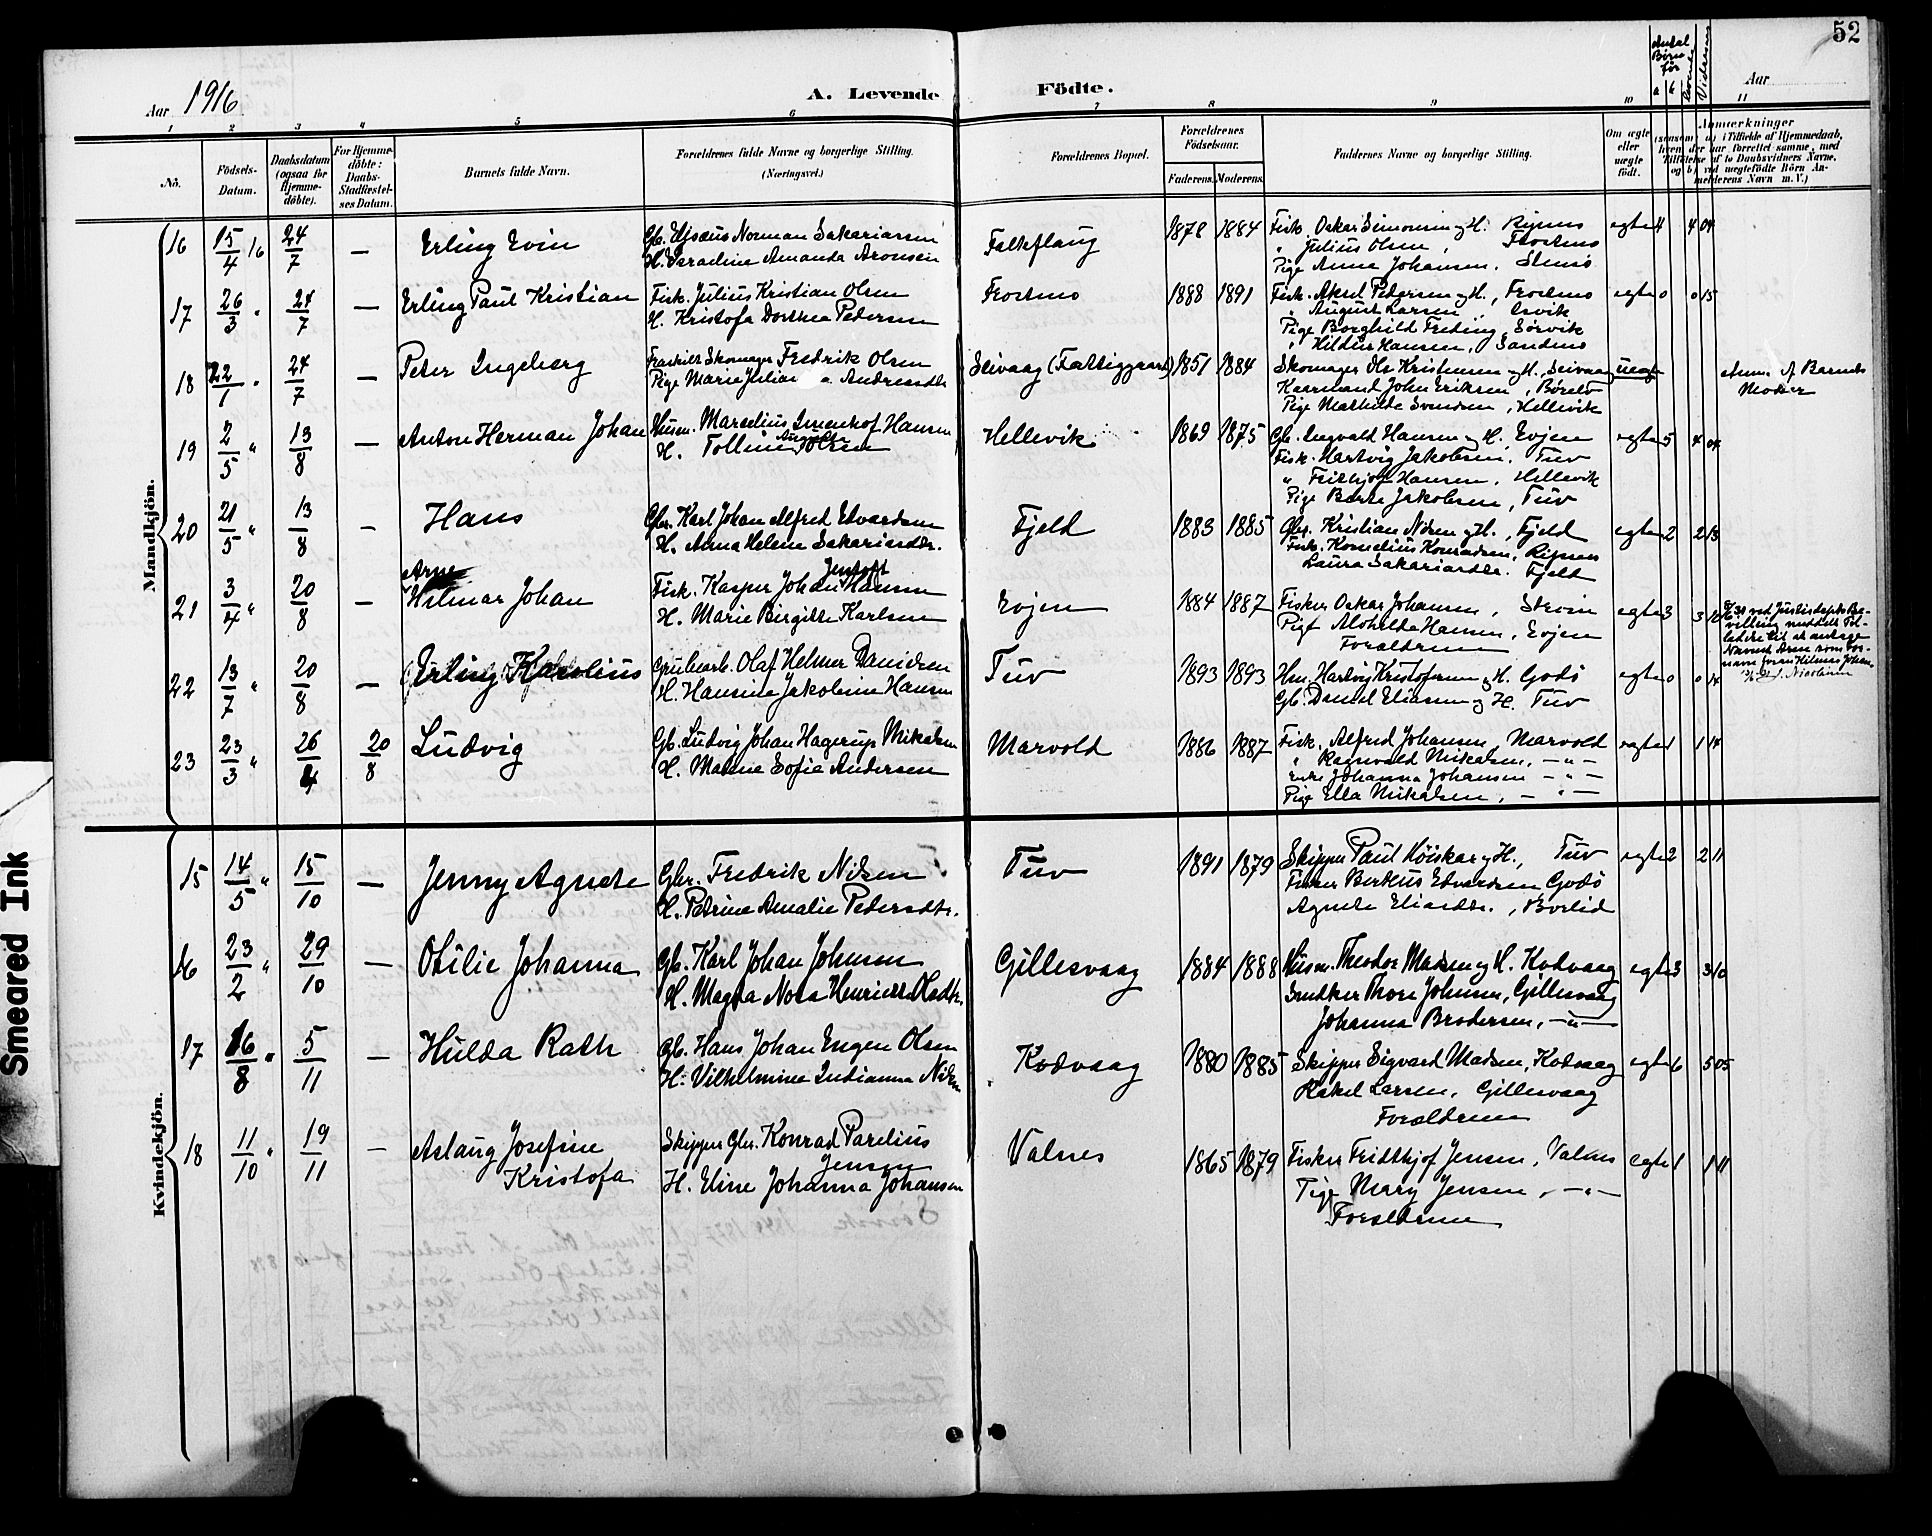 52
Aar 1916
A. Levende Födte.
Aar
Antal Børn før
a b Vidnerne
1 2 3 4 5 6 7 8 9 10 11
No.
Födsels-Datum.
Daabsdatum (ogsaa for Hjemmedöbte).
For Hjemmedöbte: Daabs-Stadfæstelses Datum.
Barnets fulde Navn.
Forældrenes fulde Navne og borgerlige Stilling. (Næringsvei.)
Forældrenes Bopæl.
Forældrenes Födselsaar.
Faderens. Moderens.
Faddernes Navne og borgerlige Stilling.
Om ægte eller uægte födt.
Anmærkninger
(saasom: a) i Tilfælde af Hjemmedaab, hven der har forrettet samme, med Tilföielse af to Daabsvidners Navne, og b) ved uægtefödte Börn Anmelderens Navn m. V.)
Mandkjön.
16 15/4 16 24/7 — Erling Evin
Gb. Elisæus Norman Sakariassen
H. Seradine Amanda Aronsen
Falkflaug 1878 1884
Fisk. Oskar Simonsen og H. Ripnes
" Julius Olsen, Frostmo
Pige Anna Johansen, Stensø
egte 4 4 09
17 26/3 " 24/7 — Erling Paul Kristian
Fisk. Julius Kristian Olsen
H. Kristofa Dorthea Pedersen
Frostmo 1888 1891
Fisk. Aksel Pedersen og H., Frostmo
" August Larsen, Esvik
Pige Borghild Freding, Sørvik
" Hildur Hansen, Sandmo
egte 0 0 15
18 22/1 " 24/7 — Peter Ingeberg
Fraskilt Skomager Fredrik Olsen
Pige Marie Juliana Andreasdtr
Seivaag (Fattiggaard) 1851 1884
Skomager Ole Kristensen og H., Seivaag
Kaarmand John Eriksen, Børelv
Pige Mathilde Svendsen, Hellevik
uegte
Anm. af Barnets Moder
19 2/5 " 13/8 — Anton Herman Johan
Husm. Marselius Imenhof Hansen
H. Tolline Augusta Olsen
Hellevik 1869 1875
Gb. Ingvald Hansen og H. Evjen
Fisk. Hartvig Jakobsen, Tuv
" Fridthjof Hansen, Hellevik
Pige Berte Jakobsen, Tuv
egte 5 4 04
20 21/5 " 13/8 — Hans
Gbr. Karl Johan Alfred Edvardsen
H. Anna Helene Sakariasdtr.
Fjeld 1883 1885
Gbr. Kristian Nilsen og H., Fjeld
Fisk. Kornelius Konradsen, Ripnes
Laura Sakariasdtr. Fjeld
egte 2 2 13
21 3/4 " 20/8 — Arne Hilmar Johan
Fisk. Kasper Johan Jentoft Hansen
H. Marie Birgitte Karlsen
Evjen 1884 1887
Fisker Oskar Johansen, Stevin
Pige Alvhilda Hansen, Evjen
Forældrene
egte 3 3 10
ved Justisdepts Bevilling meddelt Tilladelse til at antage Navnet Arne som Fornavn foran Hilmar Johan.
22 13/7 " 20/8 — Erling Karolius
Grubearb. Olaf Helmer Danielsen
H. Hansine Jakobine Hansen
Tuv 1893 1893
Hm. Hartvig Kristofersen og H. Godø
Gb. Daniel Eliasen og H. Tuv
egte 0 0 14
23 23/3 " 26/4 20/8 Ludvig
Gb. Ludvig Johan Hagerup Mikalsen
H. Maline Sofie Andersen
Marvold 1886 1887
Fisk. Alfred Johansen, Marvold
" Ragnvald Mikalsen, — " —
Enke Johanna Johansen — " —
Pige Ella Mikalsen, — " —
egte 1 1 14
Kvindekjön.
15 14/5 " 15/10 — Jenny Agnete
Gbr. Fredrik Nilsen
H. Petrine Amalie Pedersdtr.
Tuv 1891 1879
Skipper Paul Høiskar og H., Tuv
Fisker Bertius Edvardsen Godø
Agnete Eliasdtr., Børlid
egte 2 2 11
16 23/2 " 29/10 — Otilie Johanna
Gb. Karl Johan Johnsen
H. Magda Nora Henriette Olsdtr.
Gillesvaag 1884 1888
Husm. Theodor Madsen og H. Kodvaag
Snedker Thore Johnsen, Gillesvaag
Johanna Brodersen, — " —
egte 3 3 10
17 16/8 " 5/11 — Hulda Rath
Gb. Hans Johan Eugen Olsen
H. Vilhelmine Indianna Nilsen
Kodvaag 1880 1885
Skipper Sigvard Madsen, Kodvaag
Rakel Larsen, Gillesvaag
Forældrene
egte 6 5 05
18 11/10 " 19/11 — Aslaug Josefine Kristofa
Skipper Gbr. Konrad Parelius Jensen
H. Eline Johanna Johansen
Valnes 1865 1879
Fisker Fridthjof Jensen, Valnes
Pige Mary Jensen, — " —
Forældrene
egte 1 1 11
Smeared Ink